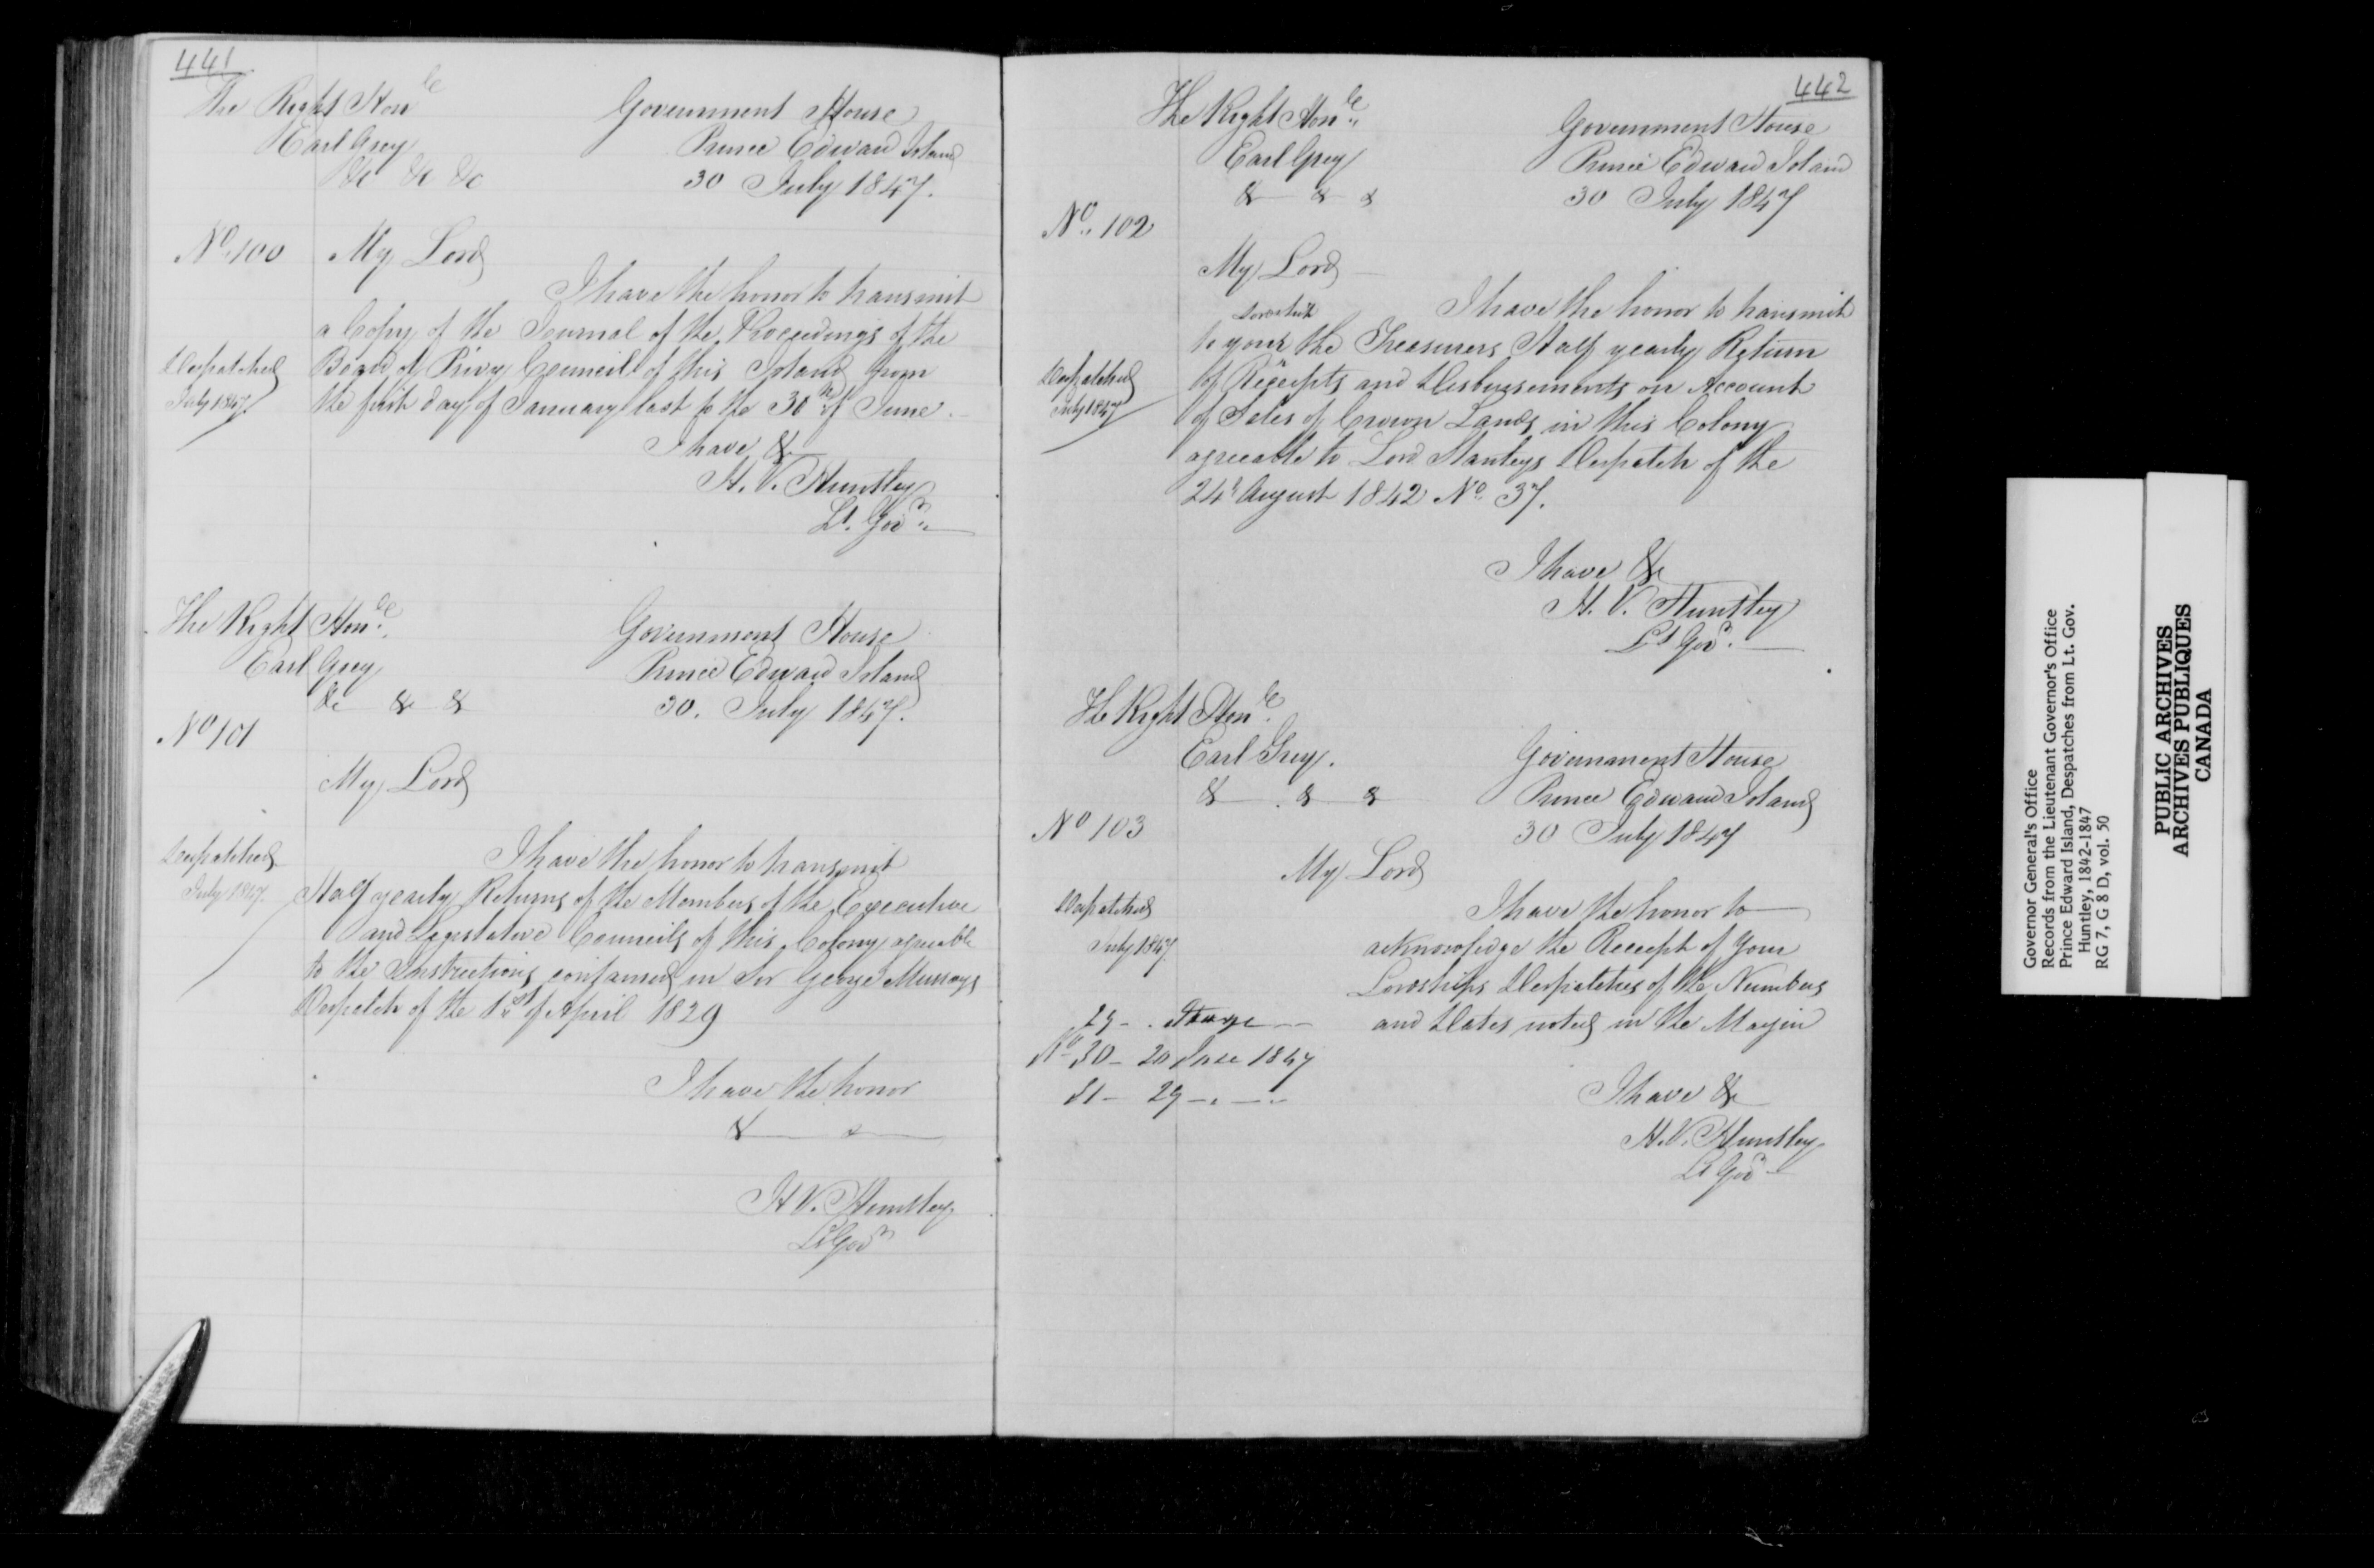 441
The Right Honle
Earl Grey
&c &c &c
Government House
Prince Edward Island
30 July 1847.
No. 100
My Lord
I have the honor to transmit
a Copy of the Journal of the Proceedings of the
Board of Privy Council of this Island from
the first day of January last to the 30th of June.
Despatched
July 1847.
I have &c
H. V. Huntley
Lt. Govr.
The Right Honle.
Earl Grey
&c & &
Government House
Prince Edward Island
30. July 1847.
No 101
My Lord
Despatched
July 1847.
I have the honor to transmit
Half yearly Returns of the Members of the Executive
and Legislative Councils of this Colony agreeable
to the Instructions contained in Sir George Murrays
Despatch of the 1st of April 1829
I have the honor
& &
H V. Huntley
Lt Govr
442
The Right Honle.
Earl Grey
& & &
Government House
Prince Edward Island
30 July 1847
No. 102
My Lord
I have the honor to transmit
Lordship
to your the Treasurers Half yearly Return
of Receipts and Disbursements on Account
of Sales of Crown Lands in this Colony
agreeable to Lord Stanleys Despatch of the
24th August 1842 No. 37.
Despatched
July 1847
I have &c
H. V. Huntley
Lt Govr.
The Right Honle.
Earl Grey.
& & &
Government House
Prince Edward Island
30 July 1847
No 103
My Lord
Despatched
July 1847.
I have the honor to
acknowledge the Receipt of Your
Lordships Despatches of the Numbers
and Dates noted in the Margin
29 -
No 30 - 20 June 1847
31 - 29 - " - "
I have &c
H. V. Huntley
Lt Govr
Governor General's Office
Records from the Lieutenant Governor's Office
Prince Edward Island, Despatches from Lt. Gov.
Huntley, 1842-1847
RG 7, G 8 D, vol. 50
PUBLIC ARCHIVES
ARCHIVES PUBLIQUES
CANADA